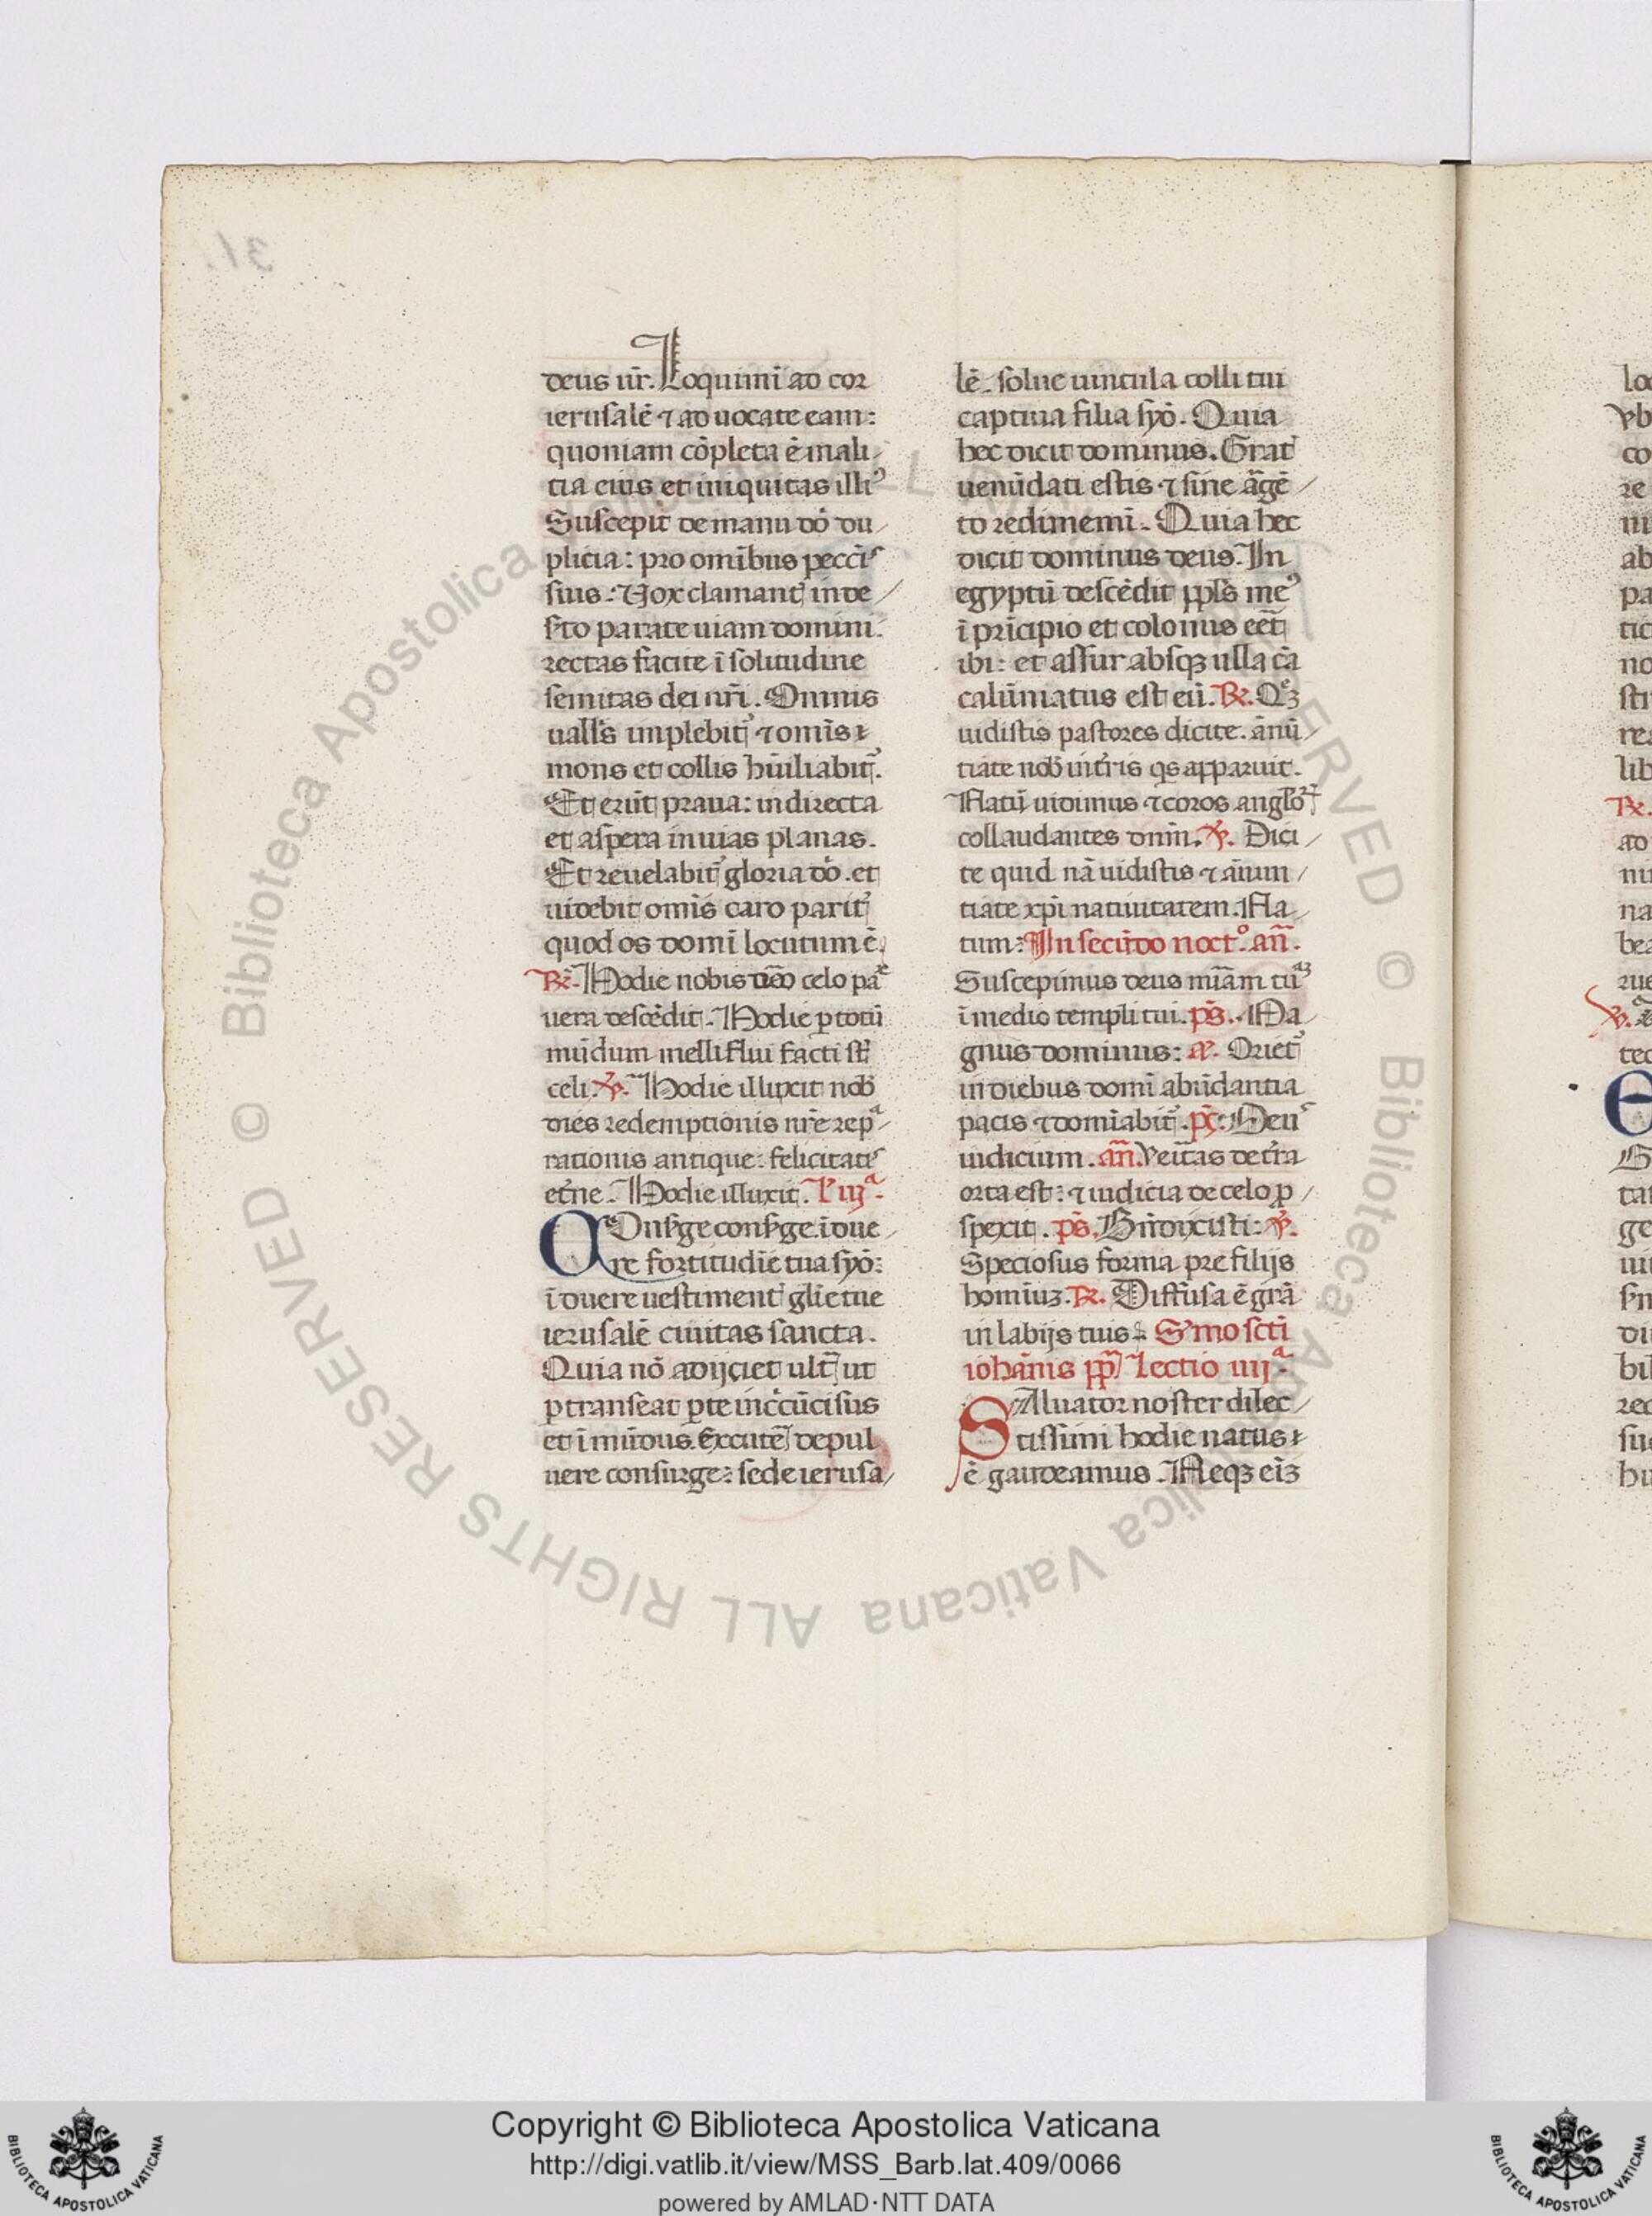 deus ur̄. Loquimi ad cor
ierusalē ⁊ aduocate eam:
quoniam cōpleta ē mali
tia eius et iniquitas illiꝰ
Suscepit de manu dō du
plicia: pro omībus pecc̄is
suis: Vox clamant̄ in de
s̄to parate uiam domini:
rectas facite ī solitudine
semitas dei nr̄i. Omnis
uall's implebit̄ ⁊ omīs
mons et collis hūiliabit̄.
Et erūt praua: in directa
et aspera in uias planas.
Et reuelabit̄ gloria dō. et
uidebit omīs caro parit̄
quod os domī locutum ē.
℞. Hodie nobis de celo pax
uera descēdit. Hodie ꝑ totū
mūdum melliflui facti st̄
celi. ℣. Hodie illuxit nob̄
dies redemptionis nr̄e rep
rationis antique: felicitatis
et̄ne. Hodie illuxit. L' iijᵃ.
Consḡe consḡe īdue
re fortitudīe tua syō:
īduere uestiment̄ gl̄ie tue
ierusalē ciuitas sancta.
Quia nō adijciet ult̄ ut
ꝑtranseat ꝑ te inc̄cūcisus
et īmūdus. Excutē de pul
uere consurge: sede ierusa
lē. solue uincula colli tui
captiua filia syō. Quia
hec dicit dominus. Grat̄
uenūdati estis ⁊ sine āgē
to redimemī. Quia hec
dicit dominus deus. In
egyptū descēdit ppl̄s meꝰ
ī prīcipio et colonus eēt
ibi: et assur absqꝫ ulla cā
calūniatus est eū. ℞. Qꝫ
uidistis pastores dicite. ānū
tiate nob̄ in t̄ris qs apparuit.
Natū uidimus ⁊ coros angl̄oꝝ
collaudantes dnm̄. ℣. Dici
te quid nā uidistis ⁊ āūm
tiate xp̄i natiuitatem. Na
tum: In secūdo noct°. an̄.
Suscepimus deus mīam tuāꝫ
ī medio templi tui. ps̄. Ma
gnus dominus: a. Oriet̄
in diebus domī abūdantia
pacis ⁊ domīabit̄. ps̄: Deus
iudicium. an̄. Veītas de t̄ra
orta est: ⁊ iudicia de celo ꝓ
spexit. ps̄. Bn̄dixisti: ℣.
Speciosus forma pre filijs
homīuꝫ. ℞. Diffusa ē grā
in labijs tuis: S'mo scti
iohānis pp̄ Lectio iiijᵃ.
Saluator noster dilec
tissimi hodie natus
ē gaudeamus. Neqꝫ eīꝫ
Copyright © Biblioteca Apostolica Vaticana
http://digi.vatlib.it/view/MSS_Barb.lat.409/0066
powered by AMLAD·NTT DATA